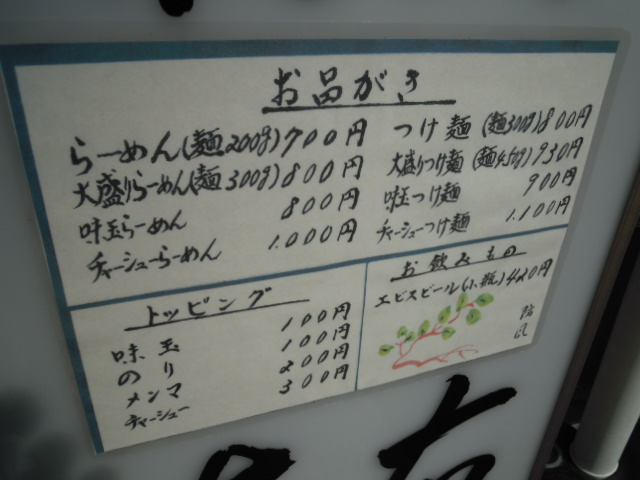 お品がき
らーめん(麺200g) 700円
大盛りらーめん(麺300g) 800円
味玉らーめん 800円
チャーシューらーめん 1.000円
つけ麺 (麺300g) 800円
大盛りつけ麺 (麺450g) 930円
味玉つけ麺 900円
チャーシューつけ麺 1.100円
トッピング
味玉 100円
のり 100円
メンマ 200円
チャーシュー 300円
お飲みもの
エビスビール(小瓶) 420円